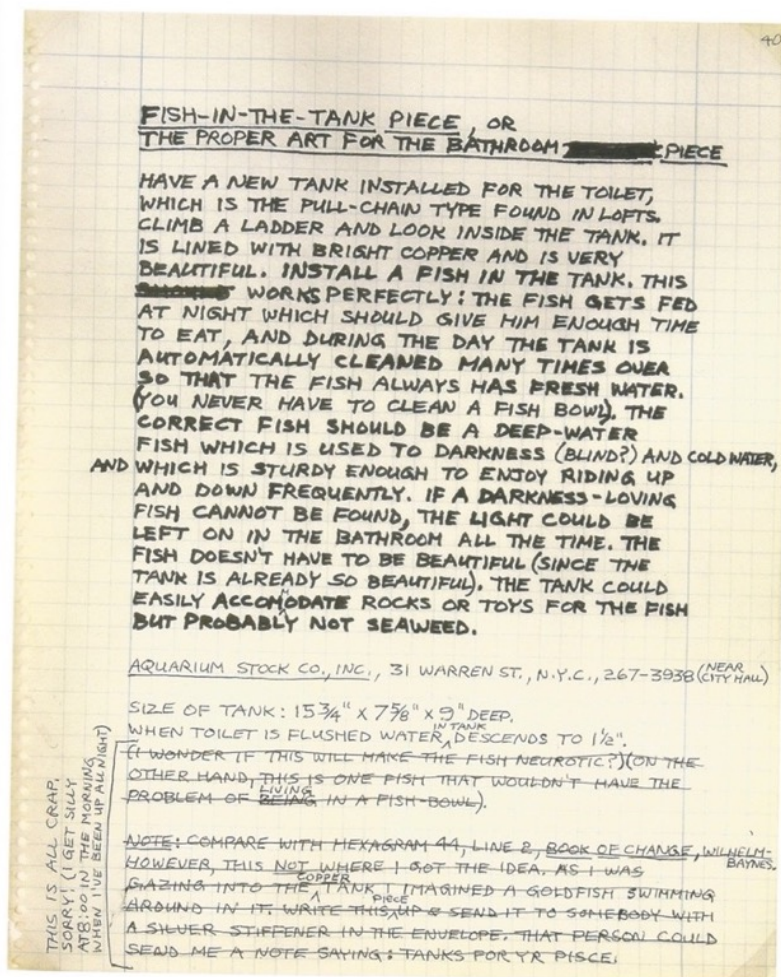 40
FISH-IN-THE-TANK PIECE, OR
THE PROPER ART FOR THE BATHROOM PIECE
HAVE A NEW TANK INSTALLED FOR THE TOILET,
WHICH IS THE PULL-CHAIN TYPE FOUND IN LOFTS.
CLIMB A LADDER AND LOOK INSIDE THE TANK. IT
IS LINED WITH BRIGHT COPPER AND IS VERY
BEAUTIFUL. INSTALL A FISH IN THE TANK. THIS
WORKS PERFECTLY: THE FISH GETS FED
AT NIGHT WHICH SHOULD GIVE HIM ENOUGH TIME
TO EAT, AND DURING THE DAY THE TANK IS
AUTOMATICALLY CLEANED MANY TIMES OVER
SO THAT THE FISH ALWAYS HAS FRESH WATER.
(YOU NEVER HAVE TO CLEAN A FISH BOWL). THE
CORRECT FISH SHOULD BE A DEEP-WATER
FISH WHICH IS USED TO DARKNESS (BLIND?) AND COLD WATER,
AND WHICH IS STURDY ENOUGH TO ENJOY RIDING UP
AND DOWN FREQUENTLY. IF A DARKNESS-LOVING
FISH CANNOT BE FOUND, THE LIGHT COULD BE
LEFT ON IN THE BATHROOM ALL THE TIME. THE
FISH DOESN'T HAVE TO BE BEAUTIFUL (SINCE THE
TANK IS ALREADY SO BEAUTIFUL). THE TANK COULD
EASILY ACCOMODATE ROCKS OR TOYS FOR THE FISH
BUT PROBABLY NOT SEAWEED.
AQUARIUM STOCK CO., INC., 31 WARREN ST., N.Y.C., 267-3938 (NEAR CITY HALL)
SIZE OF TANK: 15 3/4" X 7 5/8" X 9" DEEP.
WHEN TOILET IS FLUSHED WATER IN TANK DESCENDS TO 1 1/2".
(I WONDER IF THIS WILL MAKE THE FISH NEUROTIC?) (ON THE
OTHER HAND, THIS IS ONE FISH THAT WOULDN'T HAVE THE
PROBLEM OF BEING LIVING IN A FISH-BOWL).
NOTE: COMPARE WITH HEXAGRAM 44, LINE 2, BOOK OF CHANGE, WILHELM-BAYNES.
HOWEVER, THIS NOT WHERE I GOT THE IDEA. AS I WAS
GAZING INTO THE COPPER TANK I IMAGINED A GOLDFISH SWIMMING
AROUND IN IT. WRITE THIS PIECE UP & SEND IT TO SOMEBODY WITH
A SILVER STIFFENER IN THE ENVELOPE. THAT PERSON COULD
SEND ME A NOTE SAYING: TANKS FOR YR PISCE.
THIS IS ALL CRAP.
SORRY! (I GET SILLY
AT 8:00 IN THE MORNING
WHEN I'VE BEEN UP ALL NIGHT)